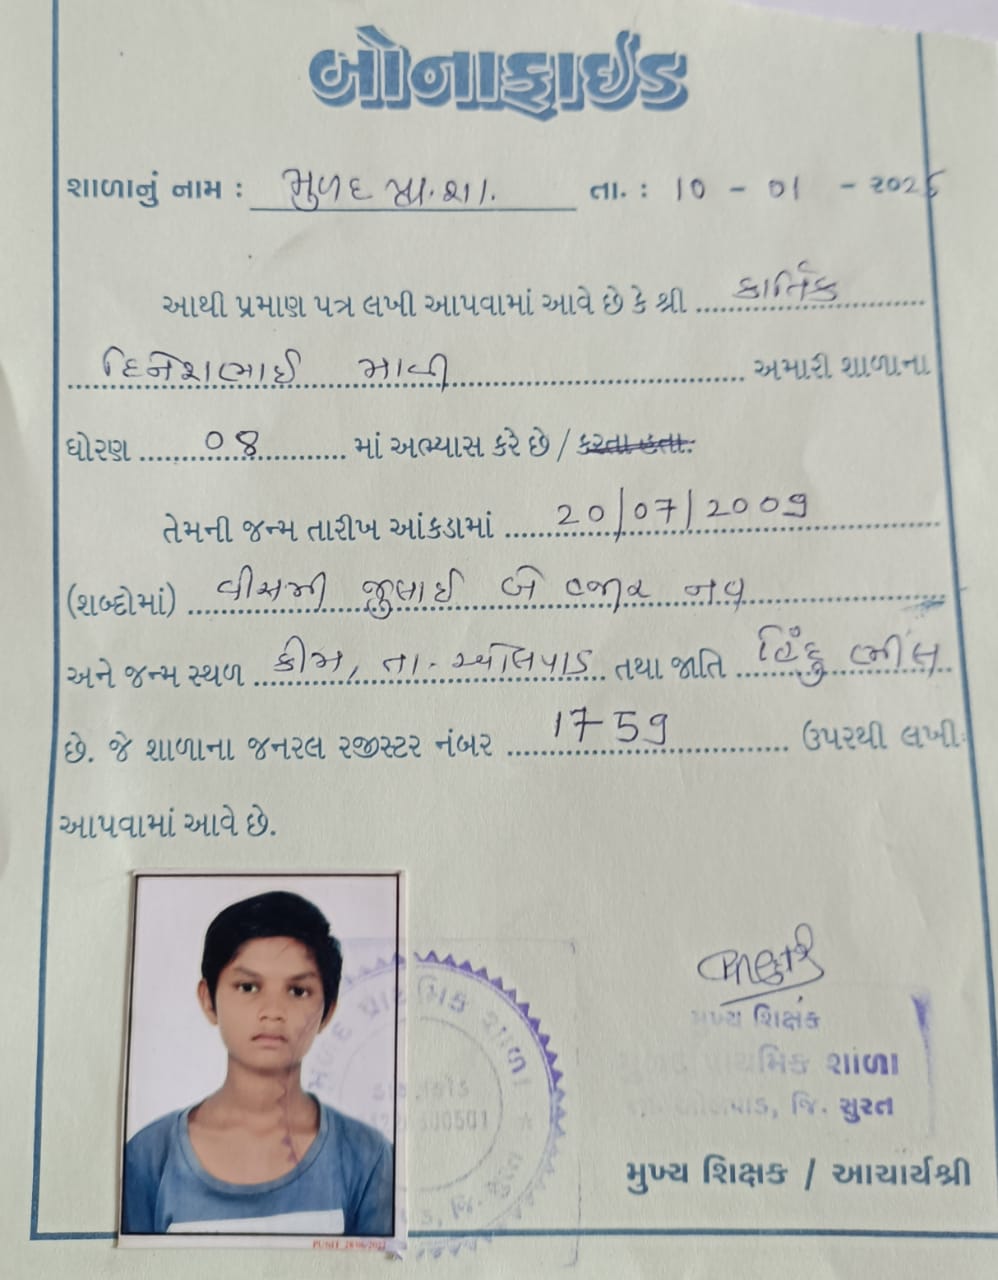 બોનાફાઈડ
શાળાનું નામ : મુળદ પ્રા.શા. તા. : 10 - 01 - ૨૦૨6
આથી પ્રમાણ પત્ર લખી આપવામાં આવે છે કે શ્રી કાર્તિક
દિનેશભાઈ માવી અમારી શાળાના
ધોરણ 08 માં અભ્યાસ કરે છે / કરતા હતા.
તેમની જન્મ તારીખ આંકડામાં 20/07/2009
(શબ્દોમાં) વીસમી જુલાઈ બે હજાર નવ
અને જન્મ સ્થળ કીમ, તા. ઓલપાડ તથા જાતિ હિંદુ ભીલ
છે. જે શાળાના જનરલ રજીસ્ટર નંબર 1759 ઉપરથી લખી
આપવામાં આવે છે.
મુળદ પ્રાથમિક શાળા
જિ. સુરત
મુખ્ય શિક્ષક
મુળદ પ્રાથમિક શાળા
તા. ઓલપાડ, જિ. સુરત
મુખ્ય શિક્ષક / આચાર્યશ્રી